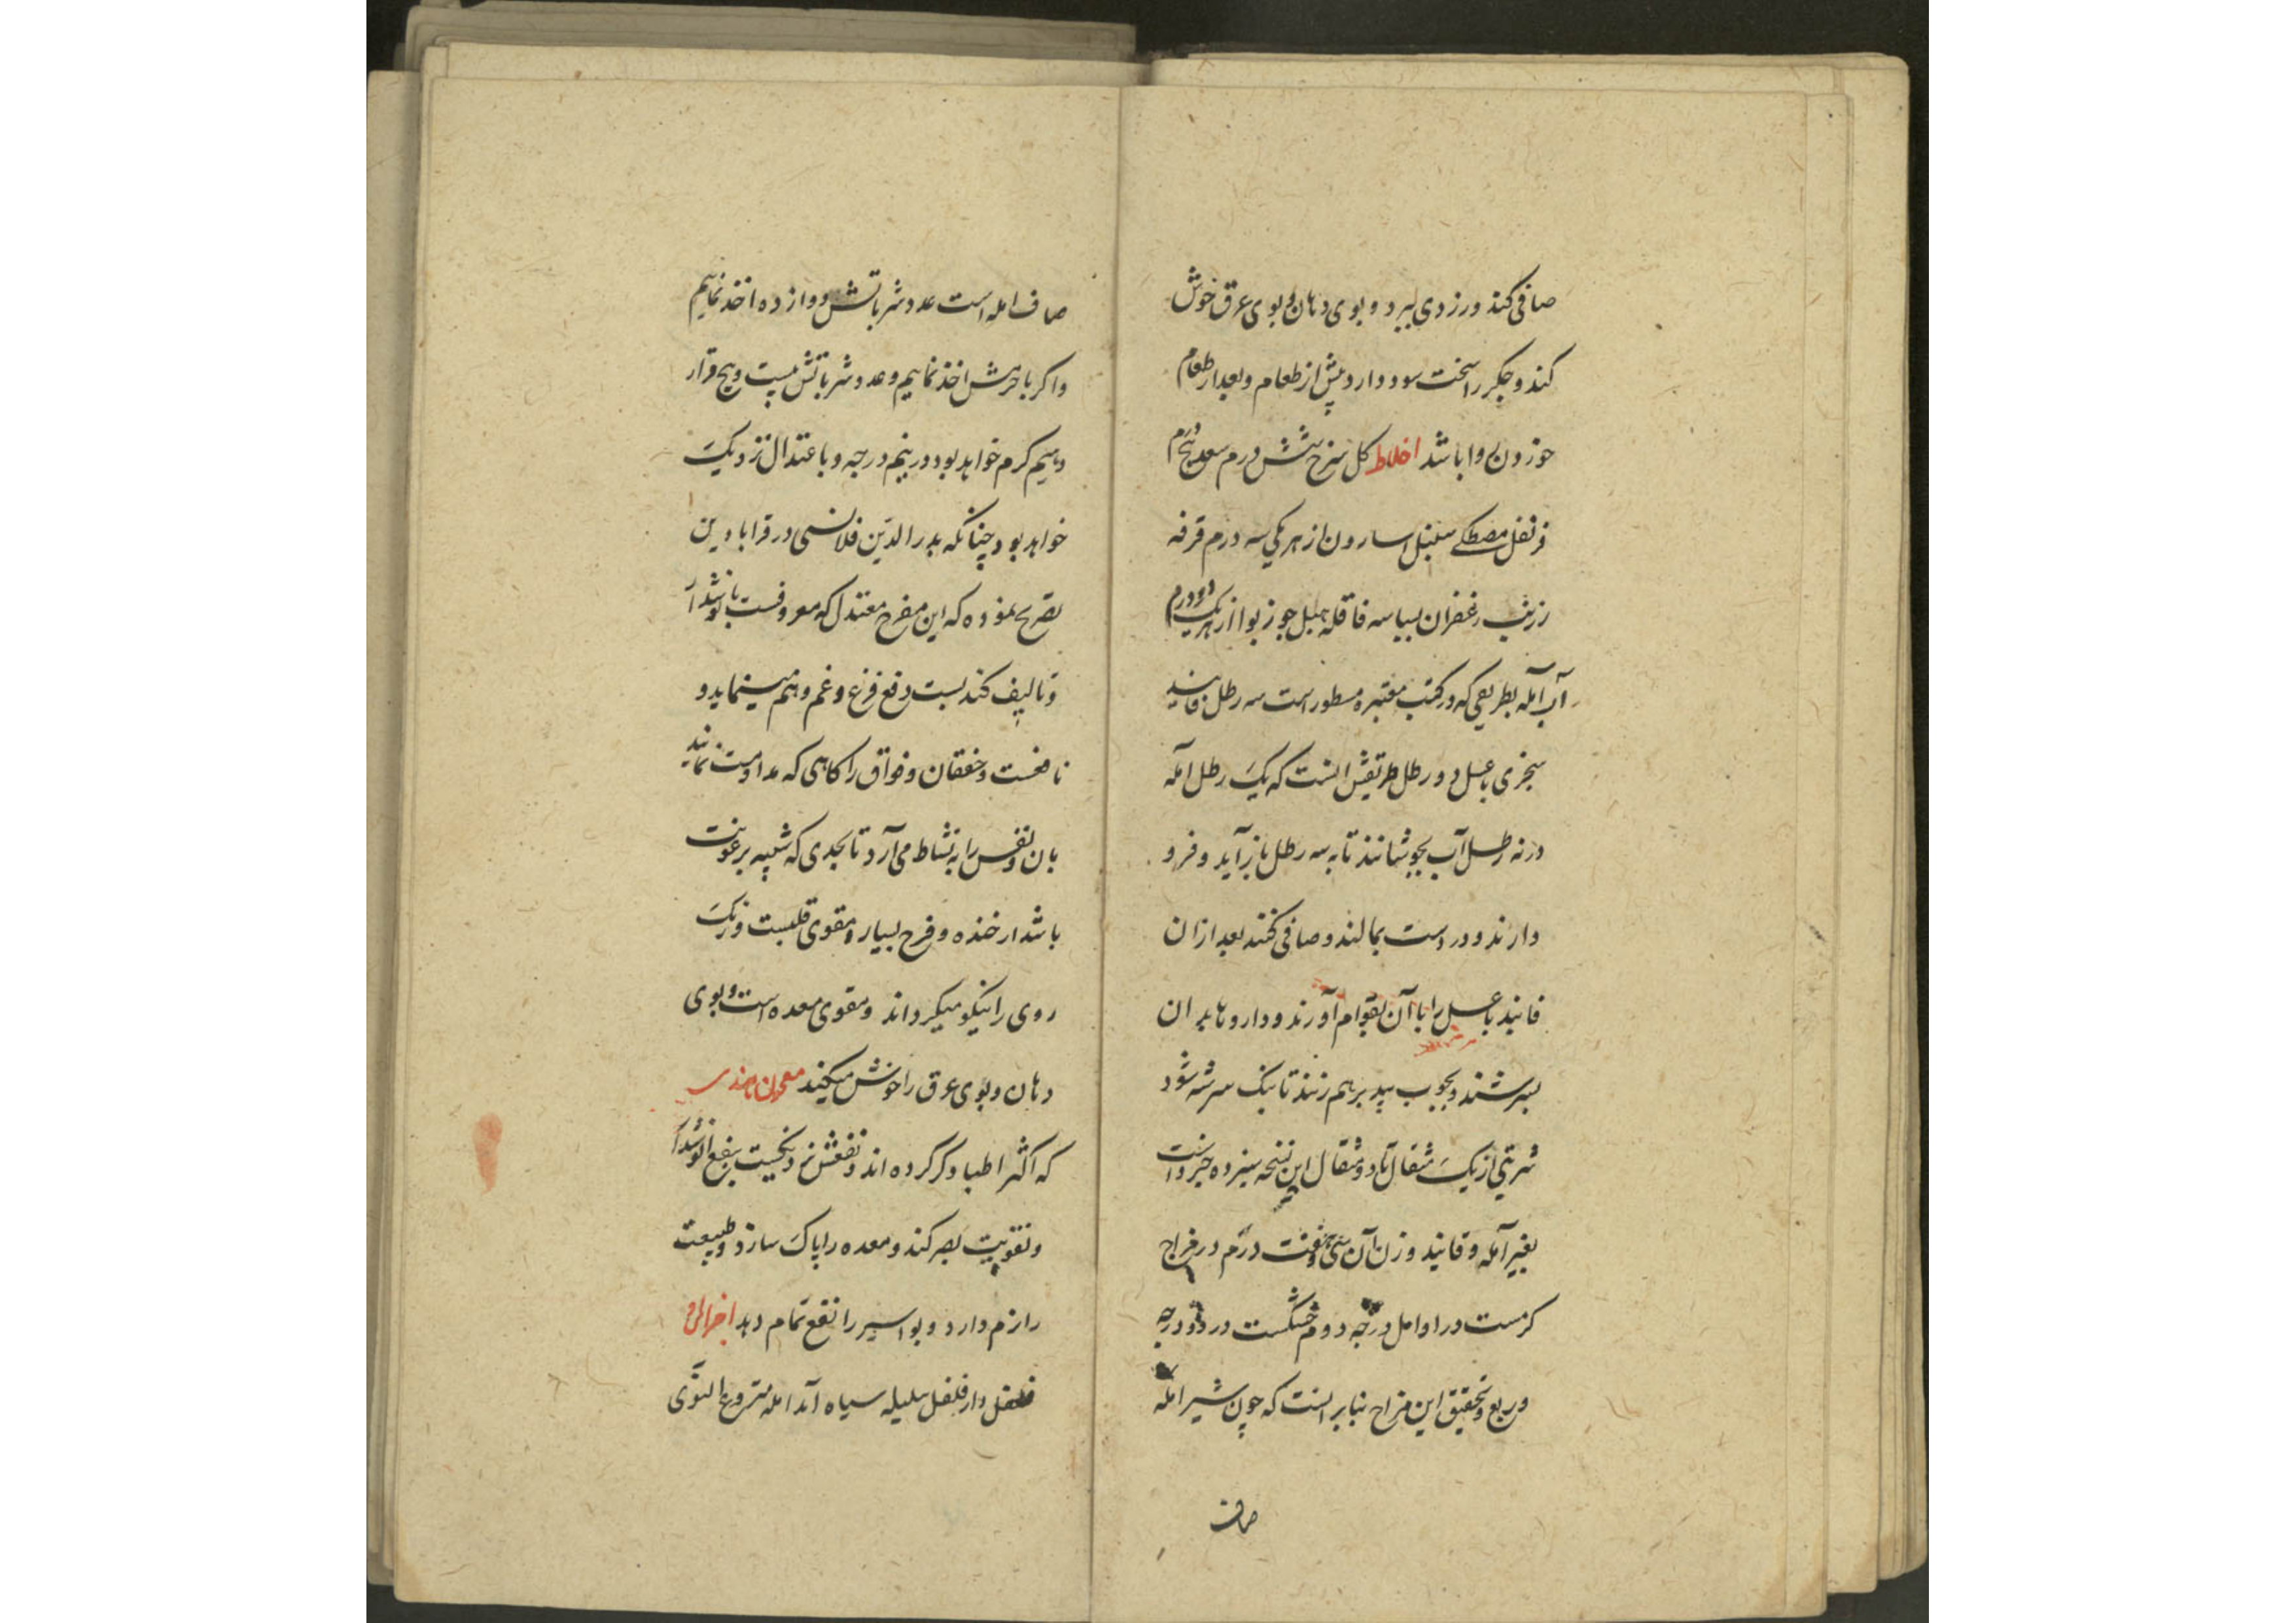 صافی کند و زردی ببرد و بوی دهان و بوی عرق خوش
کند و جگر را سخت سود دارد و پیش از طعام و بعد از طعام
خوردن روا باشد اخلاط کل سرخ شش درم سعد پنج درم
قرنفل مصطکی سنبل اسارون از هر یکی سه درم قرفه
زرنب زعفران بسباسه قاقله هیل جوز بوا از هر یک دو درم
آب آمله بطریقی که در کتب معتبره مسطور است سه رطل فانید
سجزی با عسل دو رطل طریقش آنست که یک رطل آمله
در نه رطل آب بجوشانند تا به سه رطل باز آید و فرو
دارند و در دست بمالند و صافی کنند بعد از آن
فانید با عسل را با آن بقوام آورند و داروها بدان
بسرشند و بچوب بید برهم زنند تا نیک سرشته شود
شربتی از یک مثقال تا دو مثقال این نسخه سیزده جزو است
بغیر آمله و فانید و وزن آن سی و هفت درم در مزاج
کرمست در اوایل درجه دوم خشکست در دو درجه
و ربع و تحقیق این مزاج بنابر آنست که چون شیر امله
صاف
صاف امله است عدد شرباتش دوازده اخذ نماییم
و اکر با جرمش اخذ نماییم و عدد شرباتش بیست و پنج قرار
دهیم کرم خواهد بود در پنجم درجه و باعتدال نزدیک
خواهد بود چنانکه بدر الدین قلانسی در قرابادین
تصریح نموده که این مفرح معتدل که معروفست بانوشدارو
و تالیف کندیست دفع فزع و غم و هم مینماید و
نافعست و خفقان و فواق را کاهی که مداومت نمایند
بان و نفس را به نشاط می آرد تا بحدی که شبیه برعونت
باشد از خنده و فرح بسیار و مقوی قلبست و رنک
روی را نیکو میکرداند و مقوی معده است و بوی
دهان و بوی عرق را خوش میکند معجون
که اکثر اطبا ذکر کرده اند و نفعش نزدیکست بنفع انوشدارو
و تقویت بصر کند و معده را پاک سازد و طبیعت
را نرم دارد و بواسیر را نفع تمام دهد
فلفل دارفلفل هلیله سیاه آمله منزوع النوی